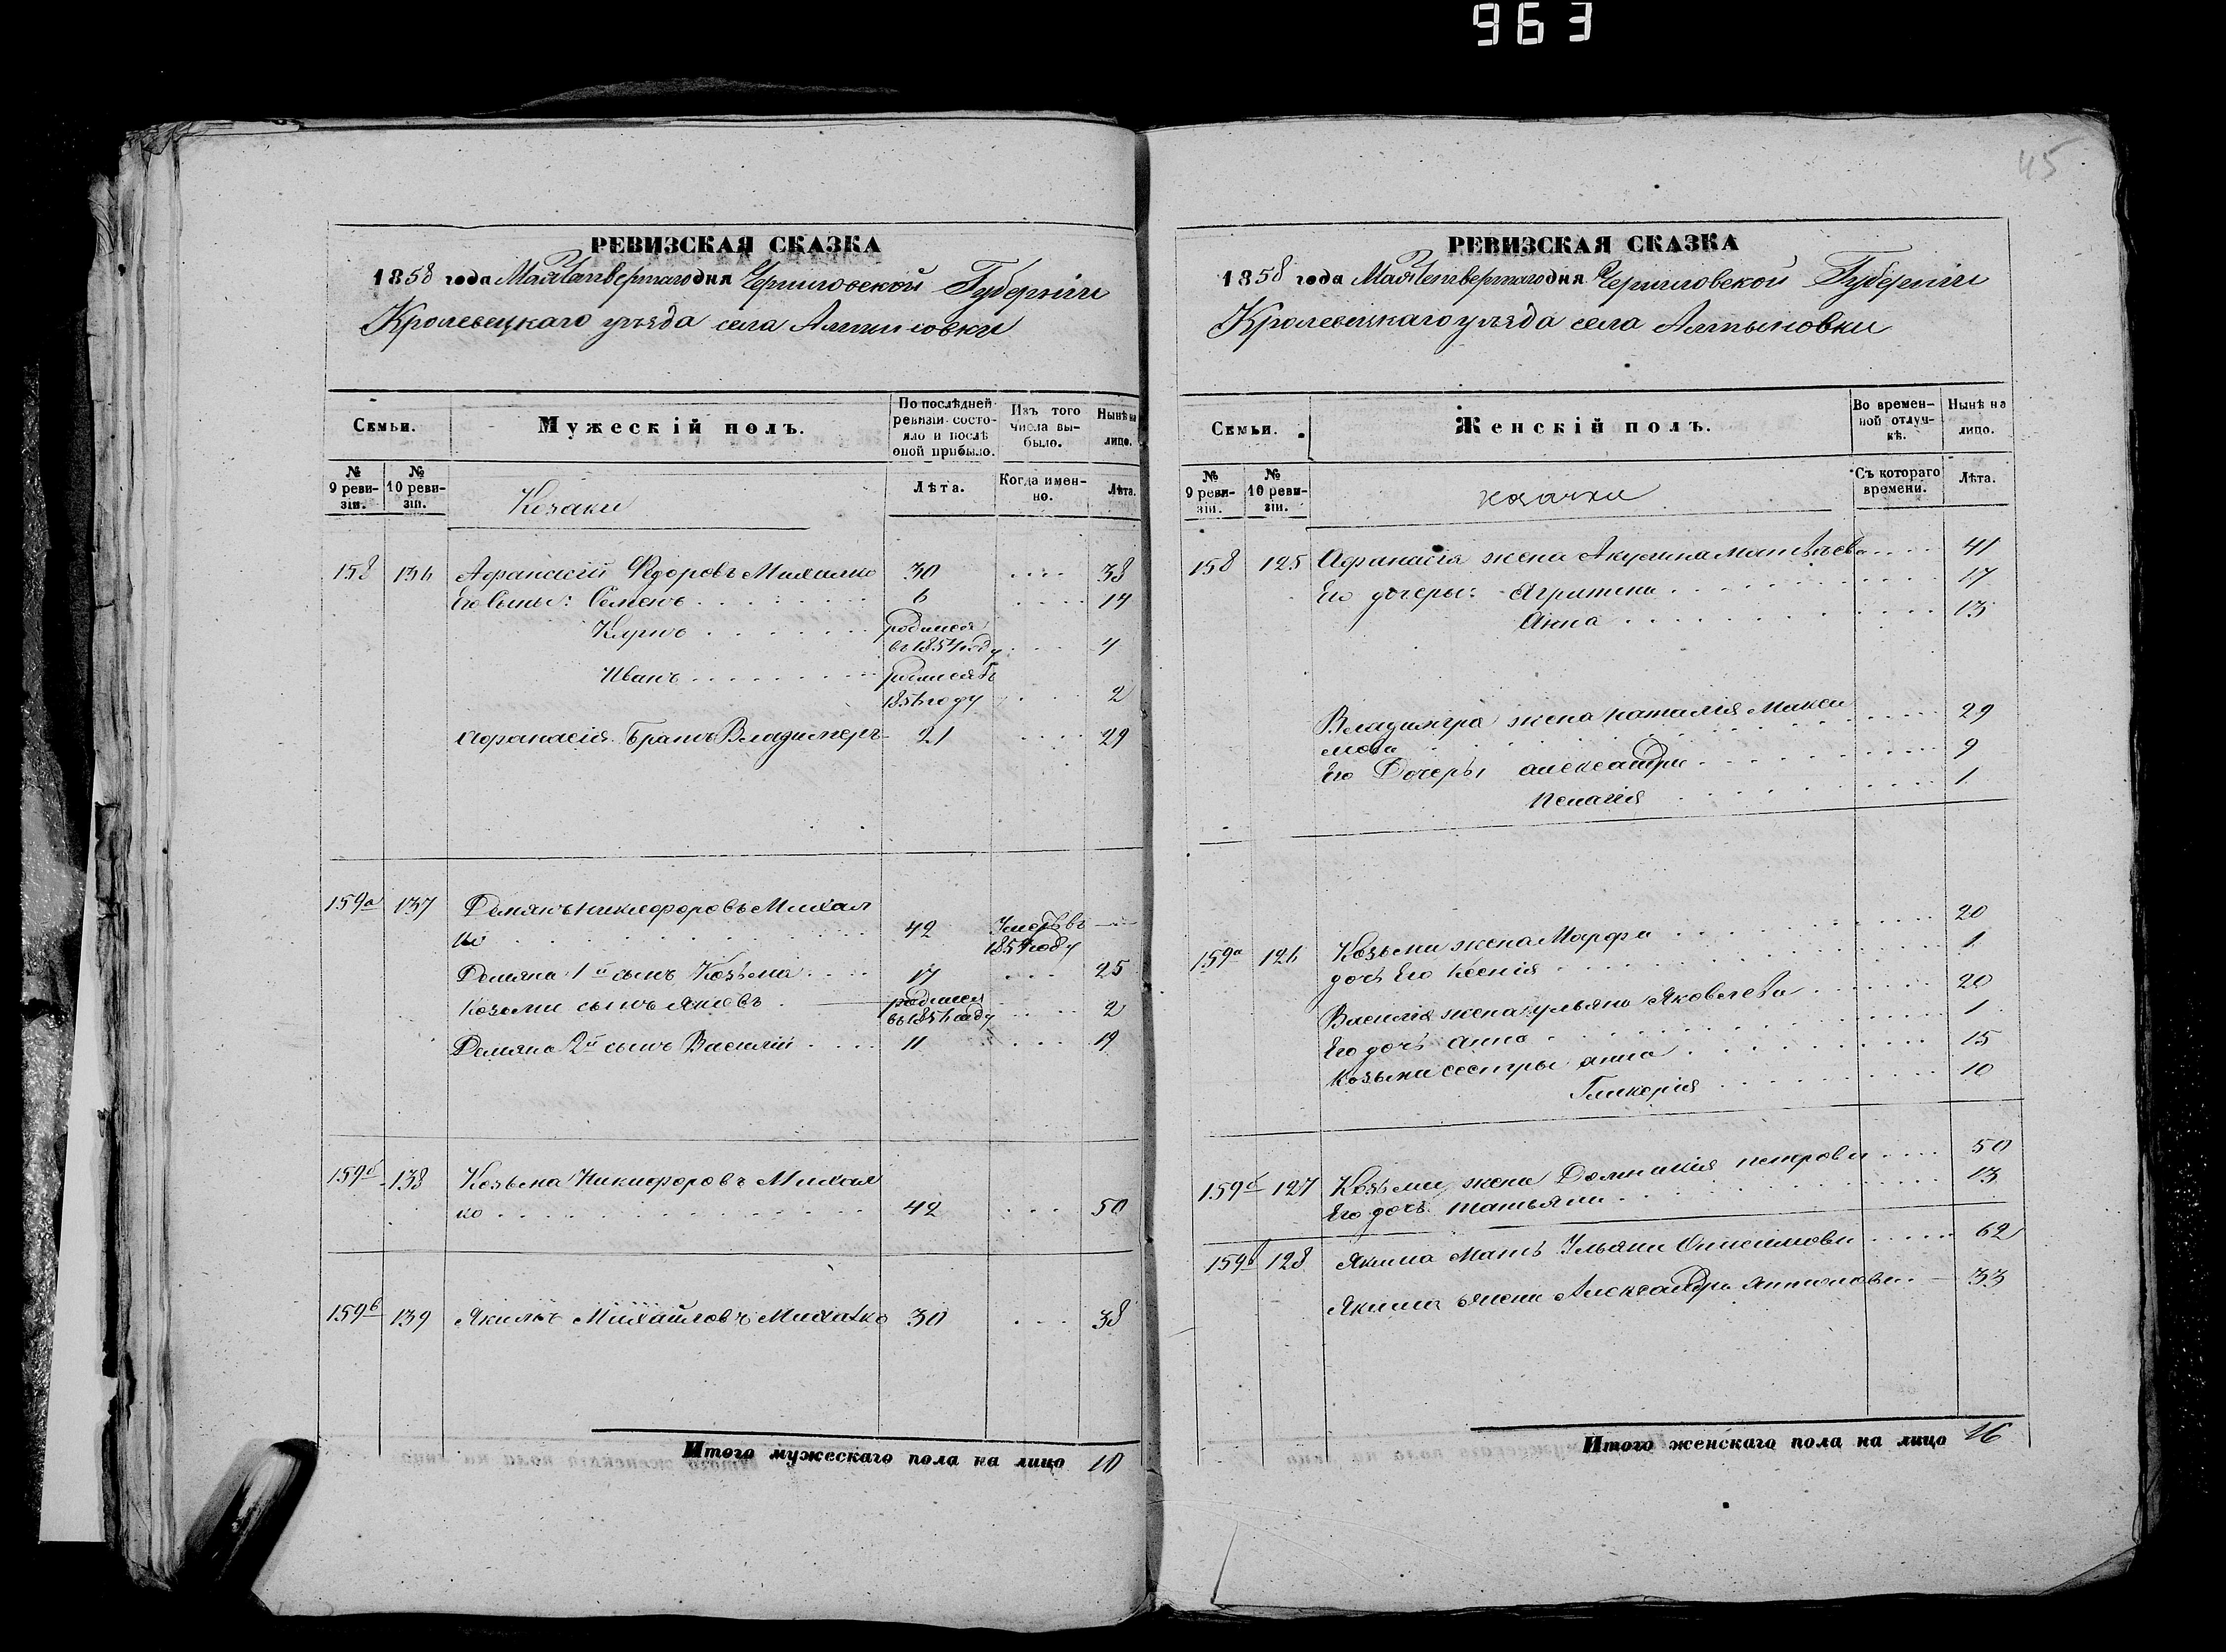 963
45
РЕВИЗСКАЯ СКАЗКА
1858 года Мая Четвертаго дня Черниговской Губерніи
Кролевецкаго уѣзда села Алтыновки
Семьи.
Мужескій полъ.
По послѣдней ревизіи состояло и послѣ оной прибыло.
Изъ того числа выбыло.
Нынѣ на лицо.
№ 9 ревизіи.
№ 10 ревизіи.
Козаки
Лѣта.
Когда именно.
Лѣта.
158 136 Афанасій Федоровъ Михалко 30 .... 38
Его Сыны: Семенъ 6 .... 14
родился
въ 1854 году .... 4
Иванъ родился въ
1856 году .... 2
Афанасія братъ Владимеръ 21 .... 29
159а 137 Демянъ Никифоровъ Михал
ко 42 Умеръ въ 1854 году —
Демяна 1й сынъ Козьма 17 ... 25
Козьми сынъ Яковъ родился
въ 1856 году .... 2
Демяна 2й сынъ Василій 11 ... 19
159б 138 Козьма Никифоровъ Михал
ко 42 ... 50
159в 139 Якимъ Михайловъ Михалко 30 ... 38
Итого мужескаго пола на лицо 10
РЕВИЗСКАЯ СКАЗКА
1858 года Мая Четвертаго дня Черниговской Губерніи
Кролевецкаго уѣзда села Алтыновки
Семьи.
Женскій полъ.
Во временной отлучкѣ.
Нынѣ на лицо.
№ 9 ревизіи.
№ 10 ревизіи.
козачки
Съ котораго времени.
Лѣта.
158 125 Афанасія жена Акулина Матвѣева .... 41
Его дочеры: Агрипена 17
Анна 13
Владимера жена наталія Макси
мова 29
Его Дочеры александра 9
пелагія 1
159а 126 Козьми жена Марфа 20
дочь Его Ксенія 1
Василія жена ульяна Яковлева 20
Его дочь анна 1
Козьми сестры анна 15
Гликерія 10
159б 127 Козьми жена Домникія петрова .... 50
Его дочь татьяна 13
159в 128 Якима мать Ульяна Онисимова 62
Якима жена Александра Антонова 33
Итого женскаго пола на лицо 16